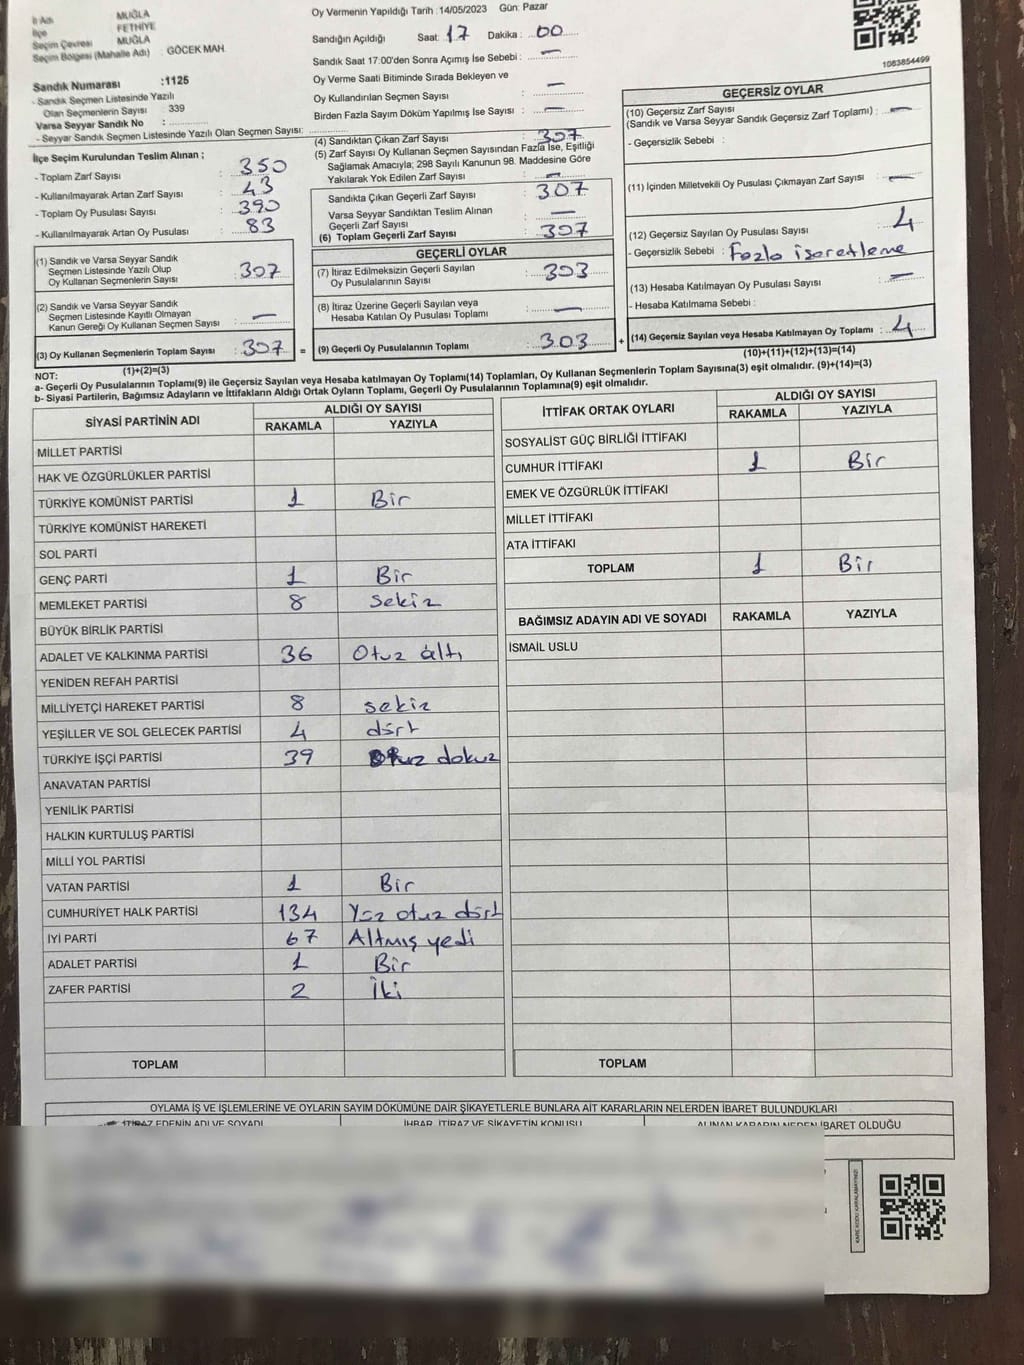 İli Adı MUĞLA
İlçe FETHİYE
Seçim Çevresi MUĞLA
Seçim Bölgesi (Mahalle Adı) : GÖCEK MAH.
Sandık Numarası :1125
- Sandık Seçmen Listesinde Yazılı
Olan Seçmenlerin Sayısı : 339
Varsa Seyyar Sandık No :
- Seyyar Sandık Seçmen Listesinde Yazılı Olan Seçmen Sayısı:
İlçe Seçim Kurulundan Teslim Alınan ;
- Toplam Zarf Sayısı : 350
- Kullanılmayarak Artan Zarf Sayısı : 43
- Toplam Oy Pusulası Sayısı : 390
- Kullanılmayarak Artan Oy Pusulası : 83
(1) Sandık ve Varsa Seyyar Sandık
Seçmen Listesinde Yazılı Olup
Oy Kullanan Seçmenlerin Sayısı : 307
(2) Sandık ve Varsa Seyyar Sandık
Seçmen Listesinde Kayıtlı Olmayan
Kanun Gereği Oy Kullanan Seçmen Sayısı : —
(3) Oy Kullanan Seçmenlerin Toplam Sayısı : 307
(1)+(2)=(3)
Oy Vermenin Yapıldığı Tarih :14/05/2023 Gün: Pazar
Sandığın Açıldığı Saat: 17 Dakika : 00
Sandık Saat 17:00'den Sonra Açımış İse Sebebi : —
Oy Verme Saati Bitiminde Sırada Bekleyen ve
Oy Kullandırılan Seçmen Sayısı : —
Birden Fazla Sayım Döküm Yapılmış İse Sayısı : —
(4) Sandıktan Çıkan Zarf Sayısı : 307
(5) Zarf Sayısı Oy Kullanan Seçmen Sayısından Fazla İse, Eşitliği
Sağlamak Amacıyla; 298 Sayılı Kanunun 98. Maddesine Göre
Yakılarak Yok Edilen Zarf Sayısı : —
Sandıkta Çıkan Geçerli Zarf Sayısı : 307
Varsa Seyyar Sandıktan Teslim Alınan
Geçerli Zarf Sayısı : —
(6) Toplam Geçerli Zarf Sayısı : 307
GEÇERLİ OYLAR
(7) İtiraz Edilmeksizin Geçerli Sayılan
Oy Pusulalarının Sayısı : 303
(8) İtiraz Üzerine Geçerli Sayılan veya
Hesaba Katılan Oy Pusulası Toplamı : —
= (9) Geçerli Oy Pusulalarının Toplamı : 303
1083854499
GEÇERSİZ OYLAR
(10) Geçersiz Zarf Sayısı
(Sandık ve Varsa Seyyar Sandık Geçersiz Zarf Toplamı) : —
- Geçersizlik Sebebi :
(11) İçinden Milletvekili Oy Pusulası Çıkmayan Zarf Sayısı : —
(12) Geçersiz Sayılan Oy Pusulası Sayısı : 4
- Geçersizlik Sebebi : Fazla işaretleme
(13) Hesaba Katılmayan Oy Pusulası Sayısı : —
- Hesaba Katılmama Sebebi :
+ (14) Geçersiz Sayılan veya Hesaba Katılmayan Oy Toplamı : 4
(10)+(11)+(12)+(13)=(14)
NOT:
a- Geçerli Oy Pusulalarının Toplamı(9) ile Geçersiz Sayılan veya Hesaba katılmayan Oy Toplamı(14) Toplamları, Oy Kullanan Seçmenlerin Toplam Sayısına(3) eşit olmalıdır. (9)+(14)=(3)
b- Siyasi Partilerin, Bağımsız Adayların ve İttifakların Aldığı Ortak Oyların Toplamı, Geçerli Oy Pusulalarının Toplamına(9) eşit olmalıdır.
SİYASİ PARTİNİN ADI ALDIĞI OY SAYISI
RAKAMLA YAZIYLA
MİLLET PARTİSİ
HAK VE ÖZGÜRLÜKLER PARTİSİ
TÜRKİYE KOMÜNİST PARTİSİ 1 Bir
TÜRKİYE KOMÜNİST HAREKETİ
SOL PARTİ
GENÇ PARTİ 1 Bir
MEMLEKET PARTİSİ 8 Sekiz
BÜYÜK BİRLİK PARTİSİ
ADALET VE KALKINMA PARTİSİ 36 Otuz altı
YENİDEN REFAH PARTİSİ
MİLLİYETÇİ HAREKET PARTİSİ 8 sekiz
YEŞİLLER VE SOL GELECEK PARTİSİ 4 dört
TÜRKİYE İŞÇİ PARTİSİ 39 Otuz dokuz
ANAVATAN PARTİSİ
YENİLİK PARTİSİ
HALKIN KURTULUŞ PARTİSİ
MİLLİ YOL PARTİSİ
VATAN PARTİSİ 1 Bir
CUMHURİYET HALK PARTİSİ 134 Yüz otuz dört
İYİ PARTİ 67 Altmış yedi
ADALET PARTİSİ 1 Bir
ZAFER PARTİSİ 2 İki
TOPLAM
İTTİFAK ORTAK OYLARI ALDIĞI OY SAYISI
RAKAMLA YAZIYLA
SOSYALİST GÜÇ BİRLİĞİ İTTİFAKI
CUMHUR İTTİFAKI 1 Bir
EMEK VE ÖZGÜRLÜK İTTİFAKI
MİLLET İTTİFAKI
ATA İTTİFAKI
TOPLAM 1 Bir
BAĞIMSIZ ADAYIN ADI VE SOYADI RAKAMLA YAZIYLA
İSMAİL USLU
TOPLAM
OYLAMA İŞ VE İŞLEMLERİNE VE OYLARIN SAYIM DÖKÜMÜNE DAİR ŞİKAYETLERLE BUNLARA AİT KARARLARIN NELERDEN İBARET BULUNDUKLARI
İTİRAZ EDENİN ADI VE SOYADI İHBAR, İTİRAZ VE ŞİKAYETİN KONUSU ALINAN KARARIN NEDEN İBARET OLDUĞU
KARE KODU KARALAMAYINIZ!